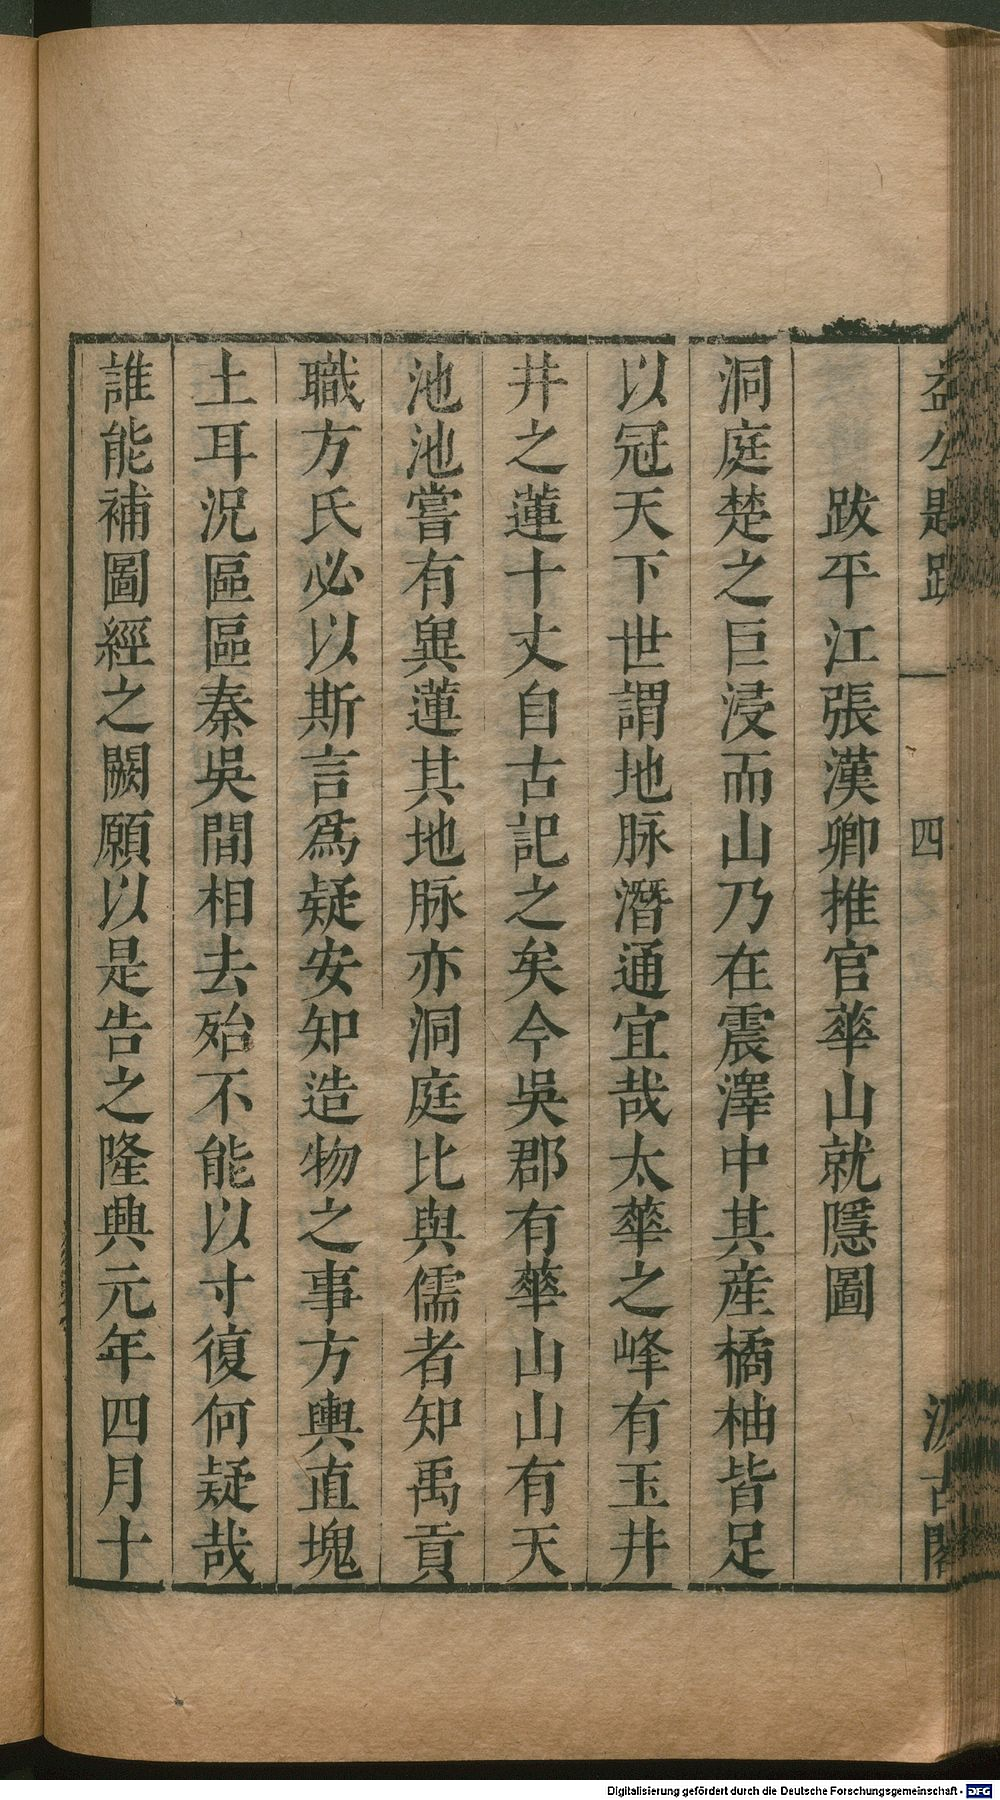 益公題跋 四 汲古閣
跋平江張漢卿推官華山就隱圖
洞庭楚之巨浸而山乃在震澤中其産橘柚皆足
以冠天下世謂地脉潛通宜哉太華之峰有玉井
井之蓮十丈自古記之矣今吳郡有華山山有天
池池嘗有異蓮其地脉亦洞庭比與儒者知禹貢
職方氏必以斯言爲疑安知造物之事方輿直塊
土耳況區區秦吳間相去殆不能以寸復何疑哉
誰能補圖經之闕願以是告之隆興元年四月十
Digitalisierung gefördert durch die Deutsche Forschungsgemeinschaft - DFG